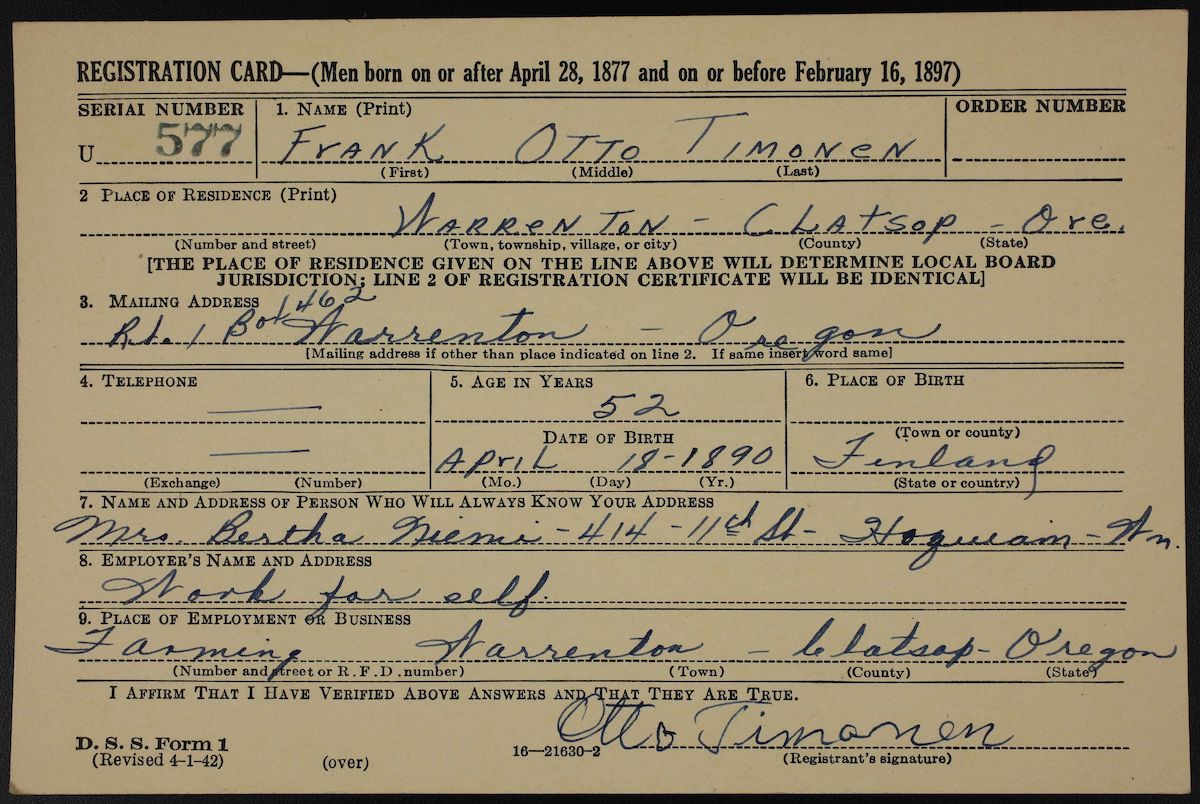 REGISTRATION CARD—(Men born on or after April 28, 1877 and on or before February 16, 1897)
SERIAL NUMBER 1. NAME (Print) ORDER NUMBER
U 577 FrANK OTTO TIMONEN
(First) (Middle) (Last)
2 PLACE OF RESIDENCE (Print)
WARRENTON - CLATSOP - Ore.
(Number and street) (Town, township, village, or city) (County) (State)
[THE PLACE OF RESIDENCE GIVEN ON THE LINE ABOVE WILL DETERMINE LOCAL BOARD
JURISDICTION; LINE 2 OF REGISTRATION CERTIFICATE WILL BE IDENTICAL]
3. MAILING ADDRESS
Rt. 1 Box 462 Warrenton - Oregon
[Mailing address if other than place indicated on line 2. If same insert word same]
4. TELEPHONE 5. AGE IN YEARS 6. PLACE OF BIRTH
52
DATE OF BIRTH (Town or county)
APriL 18-1890 Finland
(Exchange) (Number) (Mo.) (Day) (Yr.) (State or country)
7. NAME AND ADDRESS OF PERSON WHO WILL ALWAYS KNOW YOUR ADDRESS
Mrs. Bertha Niemi - 414 - 11th St - Hoquiam - Wn.
8. EMPLOYER'S NAME AND ADDRESS
Work for self.
9. PLACE OF EMPLOYMENT OR BUSINESS
Farming Warrenton - Clatsop - Oregon
(Number and street or R. F. D. number) (Town) (County) (State)
I AFFIRM THAT I HAVE VERIFIED ABOVE ANSWERS AND THAT THEY ARE TRUE.
Otto Timonen
D. S. S. Form 1
(Revised 4-1-42) (over) 16—21630-2 (Registrant's signature)